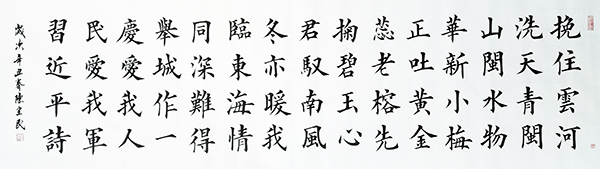 挽住雲河
洗天青閩
山閩水物
華新小梅
正吐黃金
蕊老榕先
掬碧玉心
君馭南風
冬亦暖我
臨東海情
同深難得
舉城作一
慶愛我人
民愛我軍
習近平詩
歲次辛丑春陳宝民